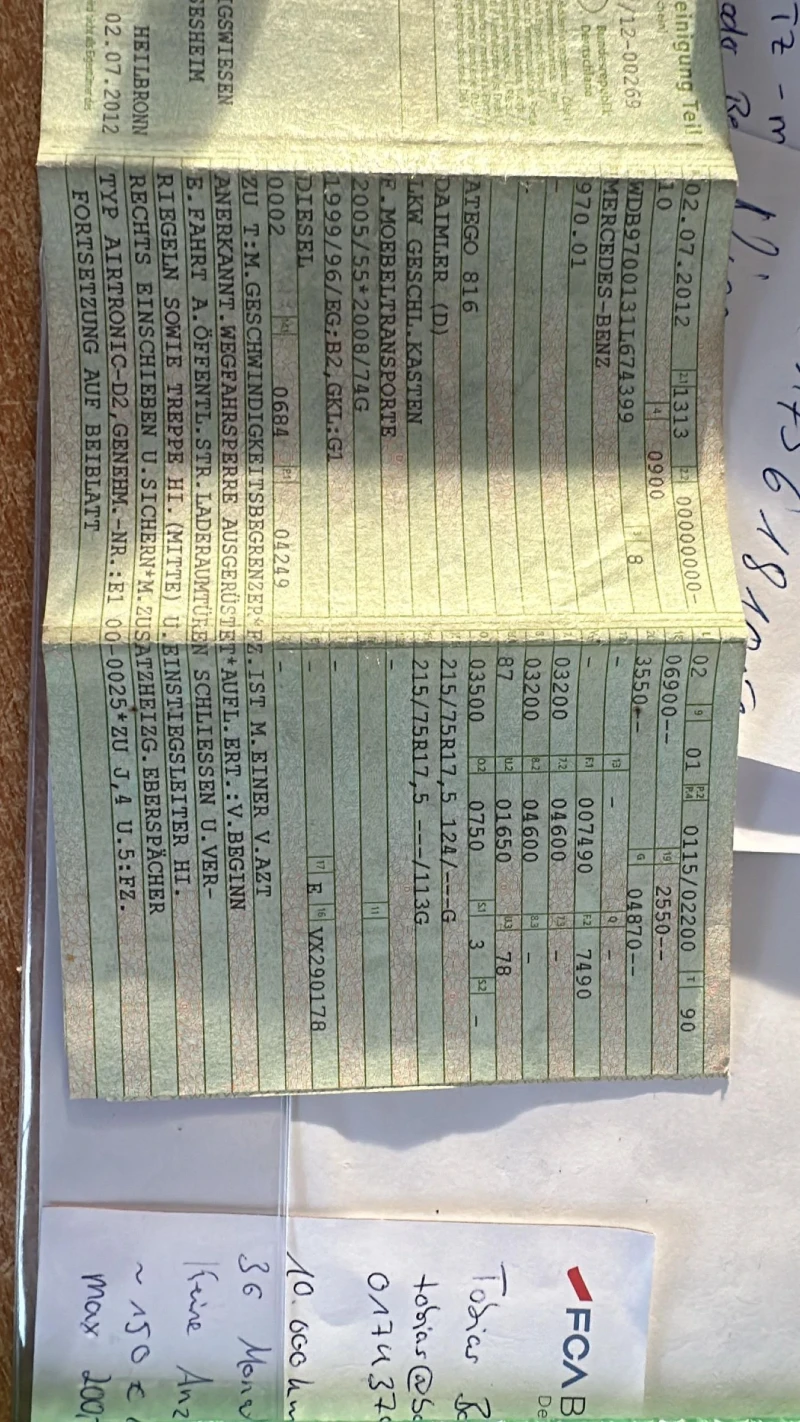 einigung Teil I
/12-00269
Bundesrepublik
Deutschland
IGSWIESEN
ESHEIM
HEILBRONN
02.07.2012
02.07.2012 2.1 1313 2.2 00000000-
10 4 0900
WDB9700131L674399 3 8
MERCEDES-BENZ
970.01
-
-
ATEGO 816
DAIMLER (D)
LKW GESCHL.KASTEN
F.MOEBELTRANSPORTE
2005/55*2008/74G
1999/96/EG;B2,GKL:G1
DIESEL
0002 0684 P.1 04249
L 02 9 01 P.2 P.4 0115/02200 T 90
18 06900-- 19 2550--
20 3550-- G 04870--
- 13 - Q -
- F.1 007490 F.2 7490
03200 7.2 04600 7.3 -
03200 8.2 04600 8.3 -
87 U.2 01650 U.3 78
03500 O.2 0750 S.1 3 S.2 -
215/75R17,5 124/---G
215/75R17,5 ---/113G
-
- 11
- 17 E 16 VX290178
-
ZU T:M.GESCHWINDIGKEITSBEGRENZER*FZ.IST M.EINER V.AZT
ANERKANNT.WEGFAHRSPERRE AUSGERÜSTET*AUFL.ERT.:V.BEGINN
E.FAHRT A.ÖFFENTL.STR.LADERAUMTÜREN SCHLIESSEN U.VER-
RIEGELN SOWIE TREPPE HI.(MITTE) U.EINSTIEGSLEITER HI.
RECHTS EINSCHIEBEN U.SICHERN*M.ZUSATZHEIZG.EBERSPÄCHER
TYP AIRTRONIC-D2,GENEHM.-NR.:E1 00-0025*ZU J,4 U.5:FZ.
FORTSETZUNG AUF BEIBLATT
TZ - m
oder
FCA B
De
Tobias
tobias@
0174370
10.000 km
36 Mona
Keine Anz
~ 150 €
max 200,